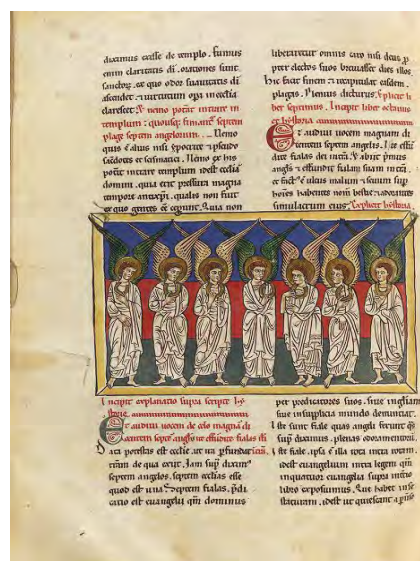 duximus exisse de templo. fumus
enim claritatis di. orationes sunt
sanctorum. ex quo odor suauitatis di
ascendit. & uirtutum opa in ecclia
claresscit. Et nemo potat intrare in
templum: quousq; finiant septem
plage septem angelorum.
Nemo
quis ē alius nisi ypocrite & pseudo
sacdotes & scismatici. Nemo ex his
potat intrare templum idest ecclia
domini. quia erit pressura magna
tempore antixpi. qualis non fuit
ex quo gentes ee ceperunt. Quia non
liberaretur omnis caro nisi deus p
pter electos suos breuiasset dies illos
hic facit finem & recapitulat easdem
plagas. Plenius dicturus. Explicit li
ber septimus. Incipit liber octauus
et hystorie
Et audiui uocem magnam di
centem septem angelis. Ite effū
dite fialas dei in terrā. & abiit primus
angls & effundit fialam suam in terrā.
et fact' ē ulcus malum & seuum sup
homines habentes nomen bestie & adorantes
simulacrum eius. Explicit hystoria.
Incipit explanatio supra scripte hy
storie.
Et audiui uocem de celo magnā di
centem septē anglis ite effundite fialas di
Data potestas est ecclie. ut iram pfundat
iram de qua exiit. Jam sup diximus
septem angelos. septem ecclias esse
quod est una. Septem fialas. pdi
catio est euangelii quam dominus
per predicatores suos. siue in gloriam
siue in supplicia mundo denuntiat.
Iste sunt fiale quas angeli ferunt qs
sup diximus. plenas odoramentorum.
Iste fiale. ipsa ē illa rota intra rotam.
idest euangelium intra legem quam
in quatuor euangelia supra in tertio
libro exposuimus. Que habet in se
stateram. idest ut quiescant a pristi